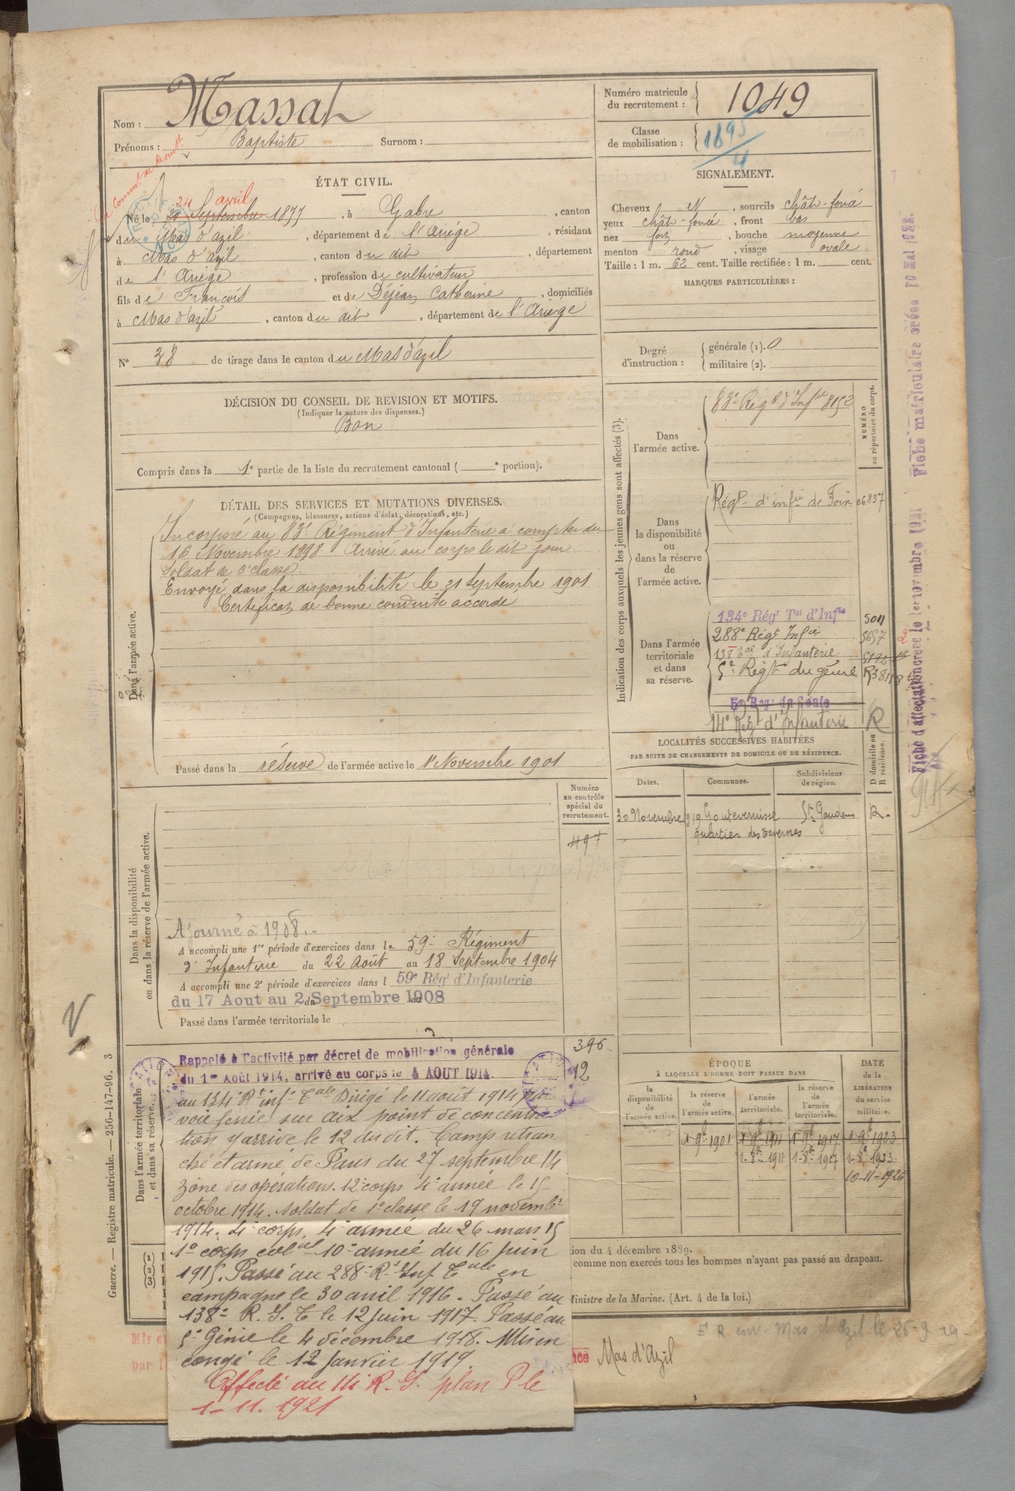 Nom : Massat
Prénoms : Baptiste Surnom :
Numéro matricule du recrutement : 1049
Classe de mobilisation : 1895/4
ÉTAT CIVIL.
24 avril
Né le 20 Septembre 1877, à Gabre, canton
du Mas d'azil, département de l'Ariège, résidant
à Mas d'azil, canton du dit, département
de l'Ariège, profession de cultivateur
fils de François et de Déjean Catherine, domiciliés
à Mas d'azil, canton du dit, département de l'Ariège
N° 38 de tirage dans le canton du Mas d'azil
SIGNALEMENT.
Cheveux N, sourcils chât-foncé
yeux chât-foncé, front bas
nez fort, bouche moyenne
menton rond, visage ovale.
Taille : 1 m. 62 cent. Taille rectifiée : 1 m. cent.
MARQUES PARTICULIÈRES :
Degré d'instruction : générale (1). 0
militaire (2).
DÉCISION DU CONSEIL DE REVISION ET MOTIFS.
(Indiquer la nature des dispenses.)
Bon
Compris dans la 1e partie de la liste du recrutement cantonal ( e portion).
DÉTAIL DES SERVICES ET MUTATIONS DIVERSES.
(Campagnes, blessures, actions d'éclat, décorations, etc.)
Dans l'armée active.
Incorporé au 83e Régiment d'Infanterie à compter du
16 Novembre 1898 Arrivé au corps le dit jour
Soldat de 2e classe.
Envoyé dans la disponibilité le 21 Septembre 1901
Certificat de bonne conduite accordé
Passé dans la réserve de l'armée active le 1er Novembre 1901
Indication des corps auxquels les jeunes gens sont affectés (3).
NUMÉRO au répertoire du corps.
Dans l'armée active.
83e Régt d'Infie 8152
Dans la disponibilité ou dans la réserve de l'armée active.
Régt d'infie de Foix 06837
Dans l'armée territoriale et dans sa réserve.
134e Régt Tal d'Infie 5011
288e Régt Infie 5657
138e Bat d'Infanterie
5e Régt du génie
5e Rég. du Génie
14e Régt d'Infanterie R
Fiche d'affectation créée le 1er novembre 1921
Fiche matriculaire créée 10 Mai 1922.
LOCALITÉS SUCCESSIVES HABITÉES
PAR SUITE DE CHANGEMENTS DE DOMICILE OU DE RÉSIDENCE.
D domicile ou R résidence.
Dates. Communes. Subdivisions de région.
30 Novembre 919 Goutevernisse St Gaudens R.
quartier des Vernes
Numéro au contrôle spécial du recrutement.
497
Dans la disponibilité ou dans la réserve de l'armée active.
Ajourné à 1908.
A accompli une 1re période d'exercices dans le 59e Régiment
d'Infanterie du 22 Août au 18 Septembre 1904
A accompli une 2e période d'exercices dans l 59e Rég d'Infanterie
du 17 Aout au 2 Septembre 1908
Passé dans l'armée territoriale le
396
12
Dans l'armée territoriale et dans sa réserve.
Rappelé à l'activité par décret de mobilisation générale
du 1er Août 1914, arrivé au corps le 4 AOUT 1914.
au 134e Rt infie Tale Dirigé le 11 août 1914 par
voie ferrée sur aix point de concentra
tion y arrive le 12 du dit. Camp retran
ché et armé de Paris du 27 septembre 14
zône des opérations. 12e corps 4e armée le 15
octobre 1914. Soldat de 1e classe le 19 novembre
1914. 4e corps, 4e armée du 26 mars 15
1e corps colal 10e armée du 16 juin
1915. Passé au 288e Rt Inf Tale en
campagne le 30 avril 1916. Passé au
138e R. I. T. le 12 juin 1917. Passé au
5e Génie le 4 décembre 1918. Mis en
congé le 12 janvier 1919.
Affecté au 14 R. I. plan P le
1-11. 1921
ÉPOQUE
À LAQUELLE L'HOMME DOIT PASSER DANS
DATE de la LIBÉRATION du service militaire.
la disponibilité de l'armée active. la réserve de l'armée active. l'armée territoriale. la réserve de l'armée territoriale.
1-9bre 1901 1-9bre 1911 1-9bre 1917 1-9bre 1923
1-8bre 1911 1-8bre 1917 1-8bre 1923
10-11-1926
tion du 4 décembre 1889.
comme non exercés tous les hommes n'ayant pas passé au drapeau.
Ministre de la Marine. (Art. 4 de la loi.)
Mas d'Azil
Guerre. — Registre matricule. — 256-147-96. 3